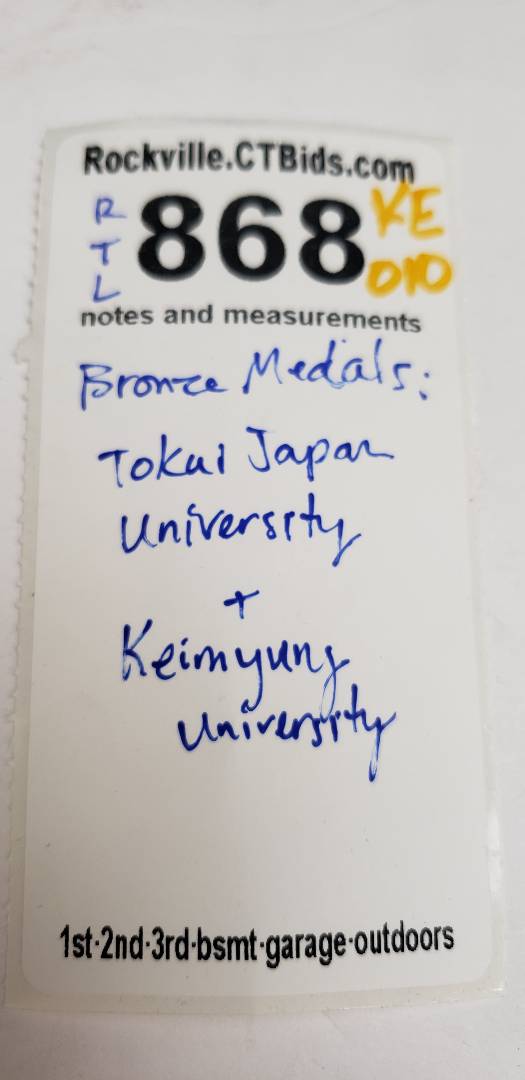 Rockville.CTBids.com
RTL 868 KE
010
notes and measurements
Bronze Medals:
Tokai Japan
University
+
Keimyung
University
1st·2nd·3rd·bsmt·garage·outdoors